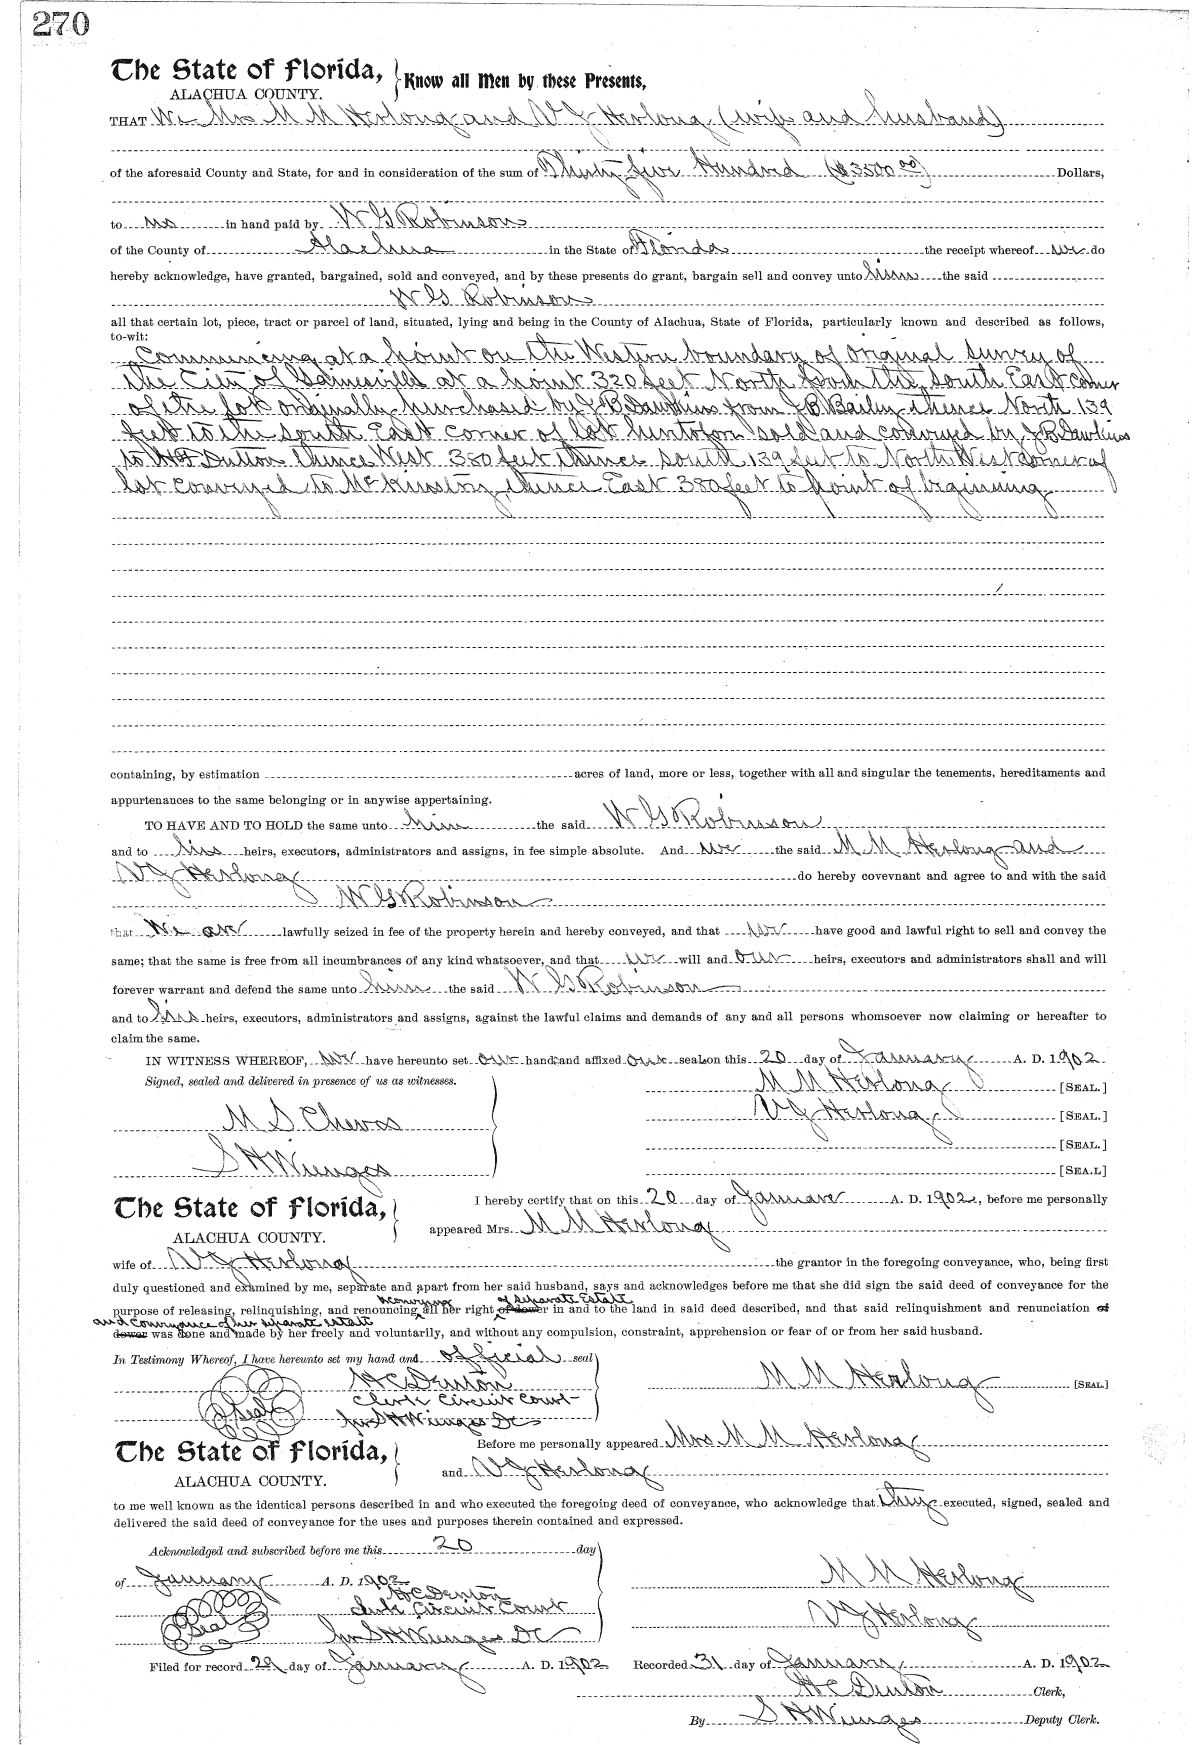 270
The State of Florida, Know all Men by these Presents,
ALACHUA COUNTY.
THAT We Mrs M M Herlong and V J Herlong (wife and husband)
of the aforesaid County and State, for and in consideration of the sum of Thirty five Hundred ($3500 00) Dollars,
to us in hand paid by W G Robinson
of the County of Alachua in the State of Florida the receipt whereof we do
hereby acknowledge, have granted, bargained, sold and conveyed, and by these presents do grant, bargain sell and convey unto him the said
W G Robinson
all that certain lot, piece, tract or parcel of land, situated, lying and being in the County of Alachua, State of Florida, particularly known and described as follows,
to-wit:
Commencing at a point on the Western boundary of original survey of
the City of Gainesville at a point 320 feet North from the South East corner
of the lot originally purchased by J B Dawkins from J B Bailey thence North 139
feet to the South East corner of lot heretofore sold and conveyed by J B Dawkins
to H F Dutton thence West 380 feet thence South 139 feet to North West corner of
lot conveyed to McKinstry, thence East 380 feet to point of beginning
containing, by estimation acres of land, more or less, together with all and singular the tenements, hereditaments and
appurtenances to the same belonging or in anywise appertaining.
TO HAVE AND TO HOLD the same unto him the said W G Robinson
and to his heirs, executors, administrators and assigns, in fee simple absolute. And we the said M M Herlong and
V J Herlong do hereby covevnant and agree to and with the said
W G Robinson
that We are lawfully seized in fee of the property herein and hereby conveyed, and that we have good and lawful right to sell and convey the
same; that the same is free from all incumbrances of any kind whatsoever, and that we will and our heirs, executors and administrators shall and will
forever warrant and defend the same unto him the said W G Robinson
and to his heirs, executors, administrators and assigns, against the lawful claims and demands of any and all persons whomsoever now claiming or hereafter to
claim the same.
IN WITNESS WHEREOF, we have hereunto set our hand and affixed our seal on this 20 day of January A. D. 1902
Signed, sealed and delivered in presence of us as witnesses. M M Herlong [SEAL.]
M S Cheves V J Herlong [SEAL.]
[SEAL.]
S H Wienges [SEA.L]
The State of Florida, I hereby certify that on this 20 day of January A. D. 1902, before me personally
ALACHUA COUNTY. appeared Mrs. M M Herlong
wife of V J Herlong the grantor in the foregoing conveyance, who, being first
duly questioned and examined by me, separate and apart from her said husband, says and acknowledges before me that she did sign the said deed of conveyance for the
conveying of separate Estate
purpose of releasing, relinquishing, and renouncing all her right of dower in and to the land in said deed described, and that said relinquishment and renunciation of
and conveyance of her separate estate
dower was done and made by her freely and voluntarily, and without any compulsion, constraint, apprehension or fear of or from her said husband.
In Testimony Whereof, I have hereunto set my hand and official seal
Seal H C Denton M M Herlong [SEAL.]
Clerk Circuit Court
per S H Wienges DC
The State of Florida, Before me personally appeared Mrs M M Herlong
ALACHUA COUNTY. and V J Herlong
to me well known as the identical persons described in and who executed the foregoing deed of conveyance, who acknowledge that they executed, signed, sealed and
delivered the said deed of conveyance for the uses and purposes therein contained and expressed.
Acknowledged and subscribed before me this 20 day
of January A. D. 1902 M M Herlong
H C Denton
Seal Clerk Circuit Court V J Herlong
per S H Wienges DC
Filed for record 29 day of January A. D. 1902 Recorded 31 day of January A. D. 1902
H C Denton Clerk,
By S H Wienges Deputy Clerk.